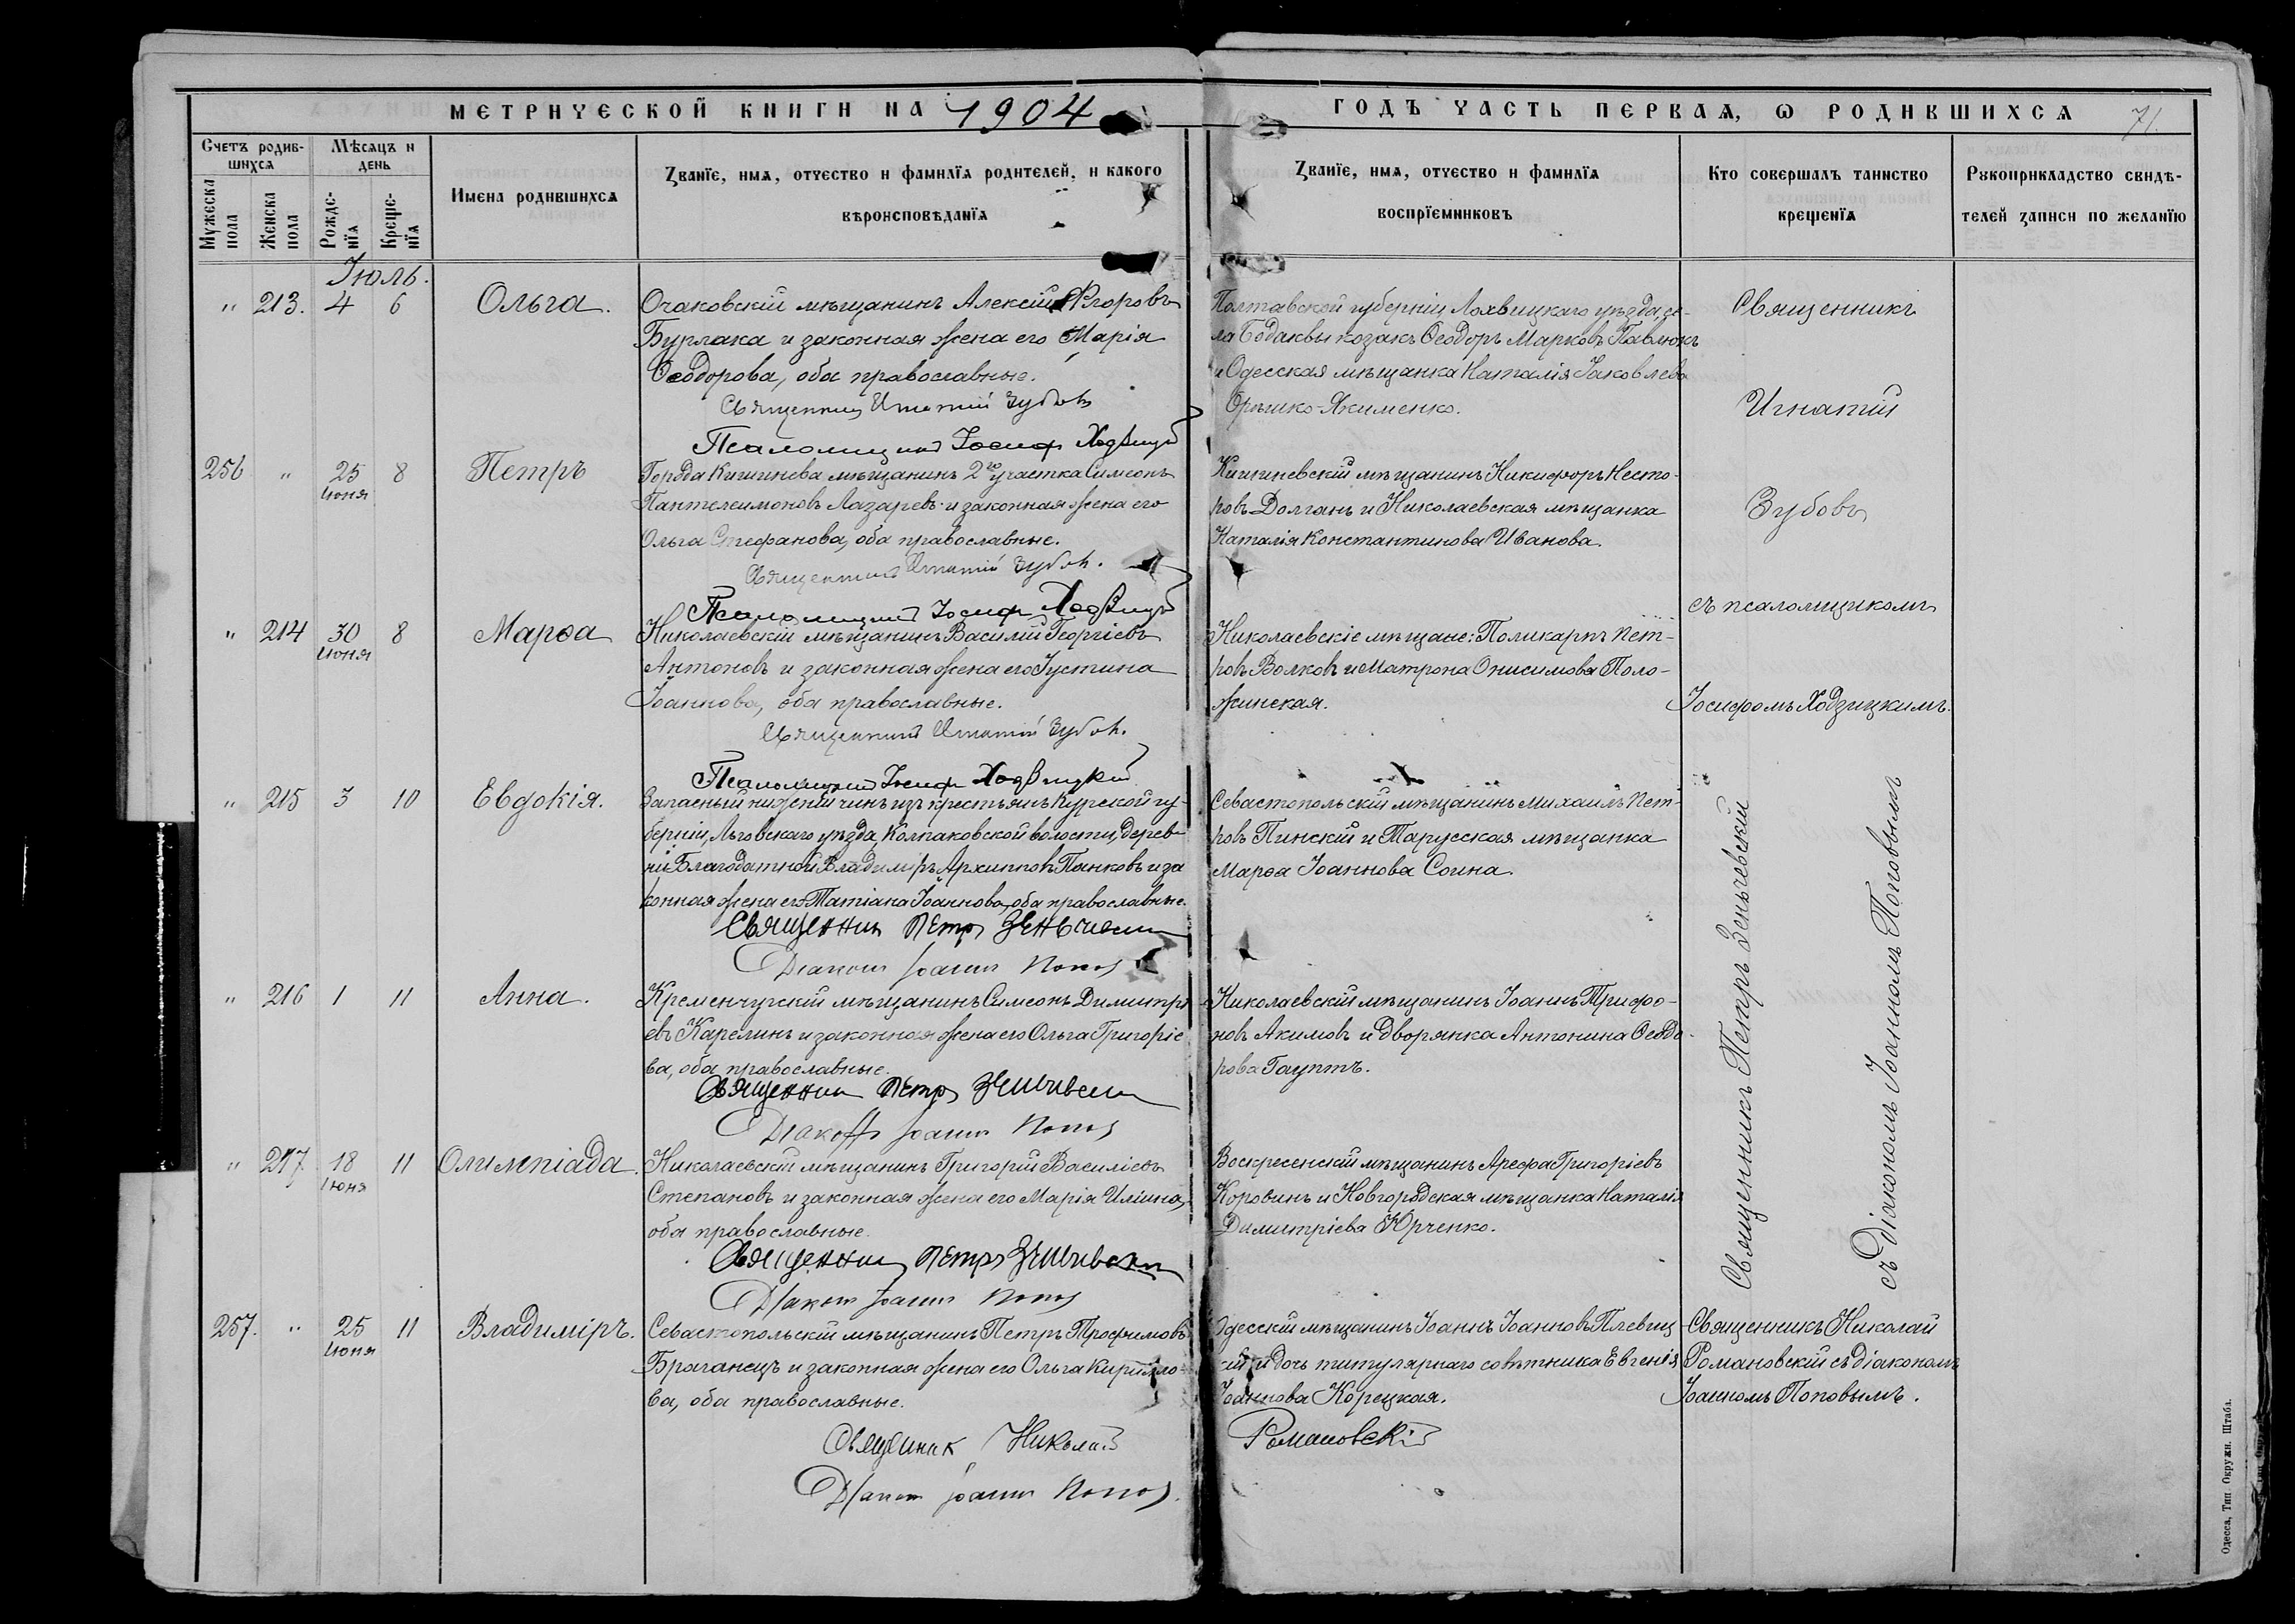 МЕТРИЧЕСКОЙ КНИГИ НА 1904
ГОДЪ ЧАСТЬ ПЕРВАѦ, Ѡ РОДИВШИХСѦ 71.
Счетъ родив-
шихсѧ
Мѣсѧцъ и
день
Мужеска
пола
Женска
пола
Рожде-
нїѧ
Креще-
нїѧ
Имена родившихсѧ
Званїе, имѧ, отчество и фамилїѧ родителей, и какого
вѣроисповѣданїѧ
Званїе, имѧ, отчество и фамилїѧ
воспрїемниковъ
Кто совершалъ таинство
крещенїѧ
Рукоприкладство свидѣ-
телей записи по желанїю
Іюль.
" 213. 4 6 Ольга.
Очаковскій мѣщанинъ Алексій Егоровъ
Бурлака и законная жена его Марія
Ѳеодорова, оба православные.
Священникъ Игнатій Зубовъ
Псаломщикъ Іосифъ Ходзицкій
Полтавской губерніи Лохвицкаго уѣзда се-
ла Бодаквы козакъ Ѳеодоръ Марковъ Павлюкъ
и Одесская мѣщанка Наталія Іаковлева
Орѣшко-Якименко.
Священникъ
Игнатій
Зубовъ
съ псаломщикомъ
Іосифомъ Ходзицкимъ.
256 " 25 8 Петръ
июня
Города Кишинева мѣщанинъ 2го участка Симеонъ
Пантелеимоновъ Лазаревъ и законная жена его
Ольга Стефанова, оба православные.
Священникъ Игнатій Зубовъ.
Псаломщикъ Іосифъ Ходзицкій
Кишиневскій мѣщанинъ Никифоръ Несто-
ровъ Долганъ и Николаевская мѣщанка
Наталія Константинова Иванова.
" 214 30 8 Марѳа
июня
Николаевскій мѣщанинъ Василій Георгіевъ
Антоновъ и законная жена его Іустина
Іоаннова, оба православные.
Священникъ Игнатій Зубовъ.
Псаломщикъ Іосифъ Ходзицкій
Николаевскіе мѣщане: Поликарпъ Пет-
ровъ Волковъ и Матрона Онисимова Поло-
жинская.
" 215 3 10 Евдокія.
Запасный нижній чинъ изъ крестьянъ Курской гу-
берніи, Льговскаго уѣзда, Колпаковской волости, дерев-
ни Благодатной Владиміръ Архиповъ Панковъ и за
конная жена его Татіана Іоаннова, оба православные.
Священникъ Петръ Зеньчевскій
Діаконъ Іоаннъ Поповъ
Севастопольскій мѣщанинъ Михаилъ Пет-
ровъ Пинскій и Тарусская мѣщанка
Марѳа Іоаннова Соина.
Священникъ Петръ Зеньчевскій
съ Діакономъ Іоанномъ Поповымъ
" 216 1 11 Анна.
Кременчугскій мѣщанинъ Симеонъ Димитрі
евъ Карелинъ и законная жена его Ольга Григоріе
ва, оба православные.
Священникъ Петръ Зеньчевскій
Діаконъ Іоаннъ Поповъ
Николаевскій мѣщанинъ Іоаннъ Трифо-
новъ Акимовъ и дворянка Антонина Ѳеодо-
рова Гауптъ.
" 217 18 11 Олимпіада.
Июня
Николаевскій мѣщанинъ Григорій Василіевъ
Степановъ и законная жена его Марія Иліина,
оба православные.
Священникъ Петръ Зеньчевскій
Діаконъ Іоаннъ Поповъ
Воскресенскій мѣщанинъ Арефа Григоріевъ
Коровинъ и Новгородская мѣщанка Наталія
Димитріева Юрченко.
257. " 25 11 Владиміръ.
Июня
Севастопольскій мѣщанинъ Петръ Трофимовъ
Браганецъ и законная жена его Ольга Кирилло-
ва, оба православные.
Священник Николай
Романовскій
Діаконъ Іоаннъ Поповъ.
Одесскій мѣщанинъ Іоаннъ Іоанновъ Плевиц-
кій и дочь титулярнаго совѣтника Евгенія
Іоаннова Корецкая.
Священникъ Николай
Романовскій съ діакономъ
Іоанномъ Поповымъ.
Одесса, Тип. Окружн. Штаба.